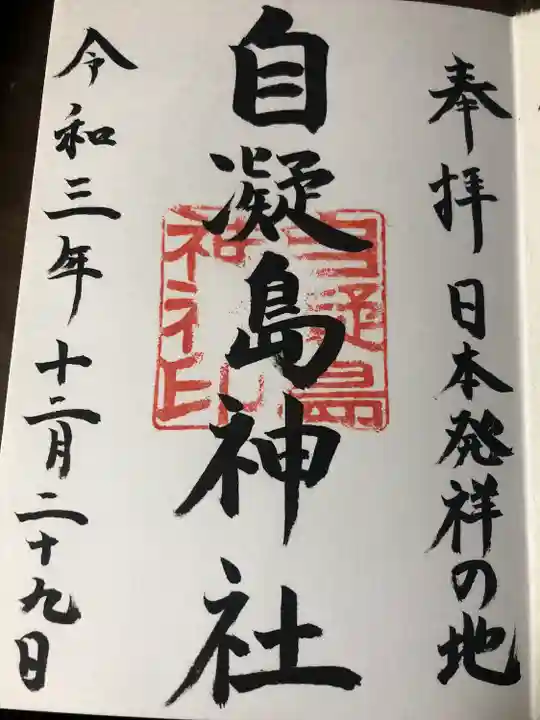 奉拝 日本発祥の地
自凝島神社
自凝島
神社印
令和三年十二月二十九日